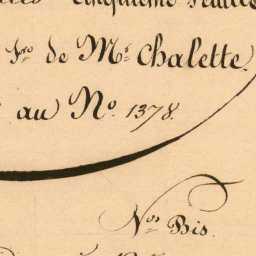 cinquième feuille
fro de Mr. Chalette.
au No. 1378.
Nos Bis.